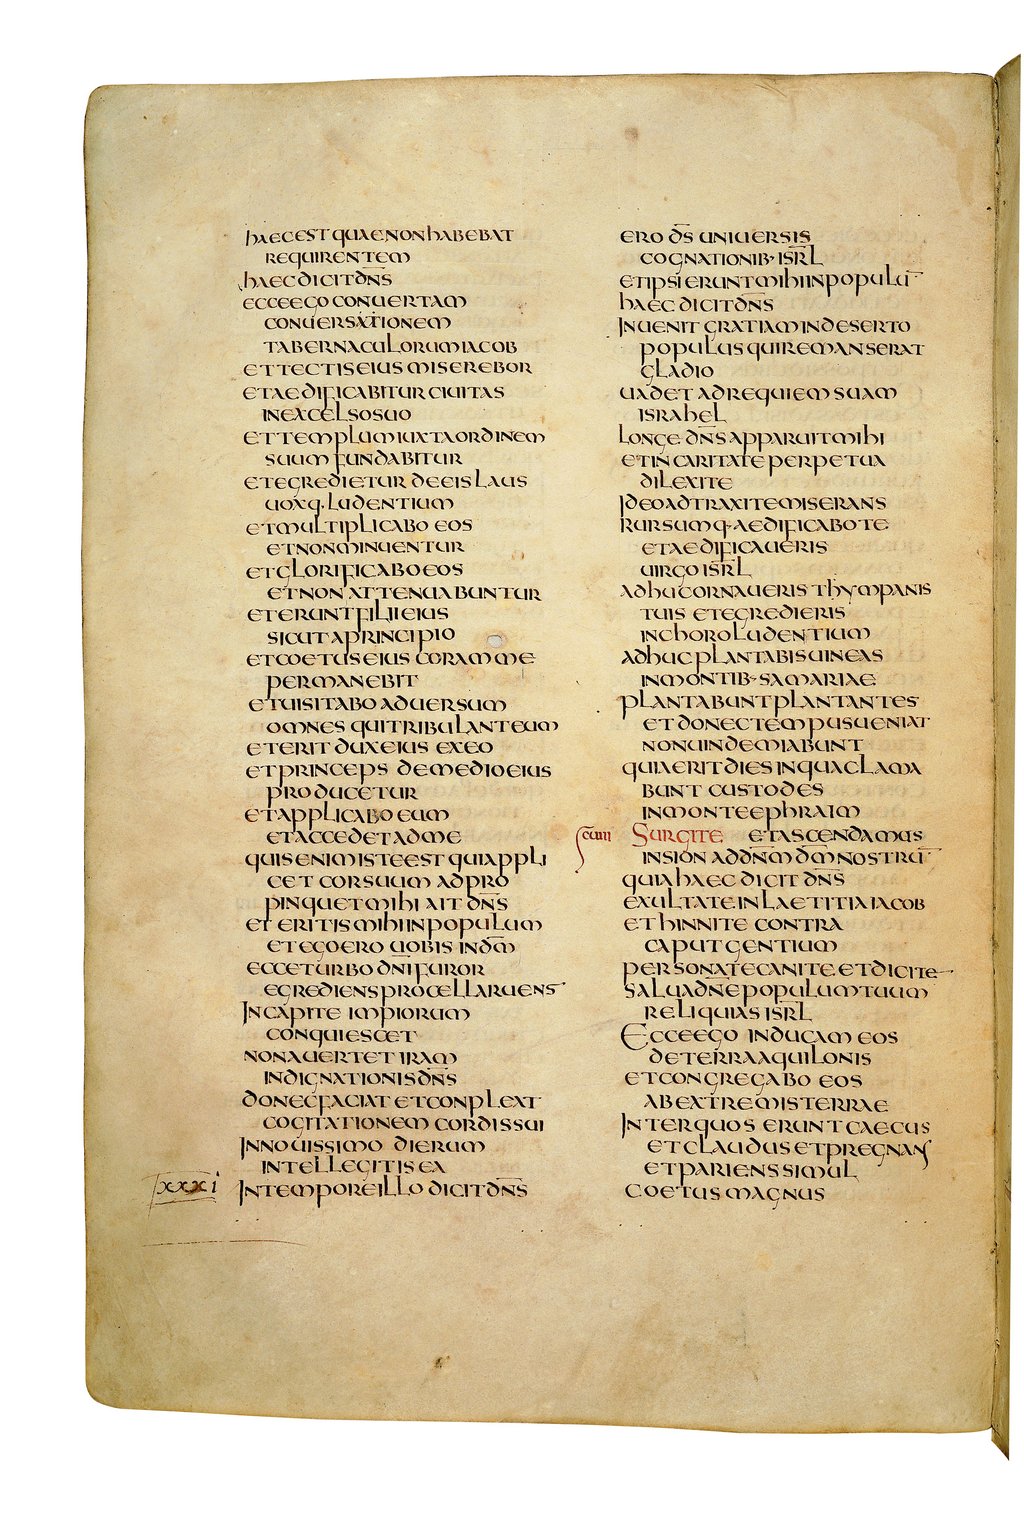 haec est quae non habebat
requirentem
haec dicit dn̅s
ecce ego conuertam
conuersationem
tabernaculorum iacob
et tectis eius miserebor
et aedificabitur ciuitas
in excelso suo
et templum iuxta ordinem
suum fundabitur
et egredietur de eis laus
uoxq· ludentium
et multiplicabo eos
et non minuentur
et glorificabo eos
et non attenuabuntur
et erunt filii eius
sicut a principio
et coetus eius coram me
permanebit
et uisitabo aduersum
omnes qui tribulant eum
et erit dux eius ex eo
et princeps de medio eius
producetur
et applicabo eum
et accedet ad me
quis enim iste est qui appli
cet cor suum ad pro
pinquet mihi ait dn̅s
et eritis mihi in populum
et ego ero uobis in dm̅
ecce turbo dn̅i furor
egrediens procella ruens
In capite impiorum
conquiescet
non auertet iram
indignationis dn̅s
donec faciat et conpleat
cogitationem cordis sui
In nouissimo dierum
intellegitis ea
xxxi In tempore illo dicit dn̅s
ero d̅s uniuersis
cognationib· isr̅l
et ipsi erunt mihi in populu̅
haec dicit dn̅s
Inuenit gratiam in deserto
populus qui remanserat
gladio
uadet ad requiem suam
israhel
longe dn̅s apparuit mihi
et in caritate perpetua
dilexi te
Ideo adtraxi te miserans
rursumq· aedificabo te
et aedificaueris
uirgo isr̅l
adhuc ornaueris thympanis
tuis et egredieris
in choro ludentium
adhuc plantabis uineas
in montib· samariae
plantabunt plantantes
et donec tempus ueniat
non uindemiabunt
quia erit dies in qua clama
bunt custodes
in monte ephraim
Surgite et ascendamus
in sion ad dn̅m dm̅ nostru̅
quia haec dicit dn̅s
exultate in laetitia iacob
et hinnite contra
caput gentium
personate canite et dicite
salua dn̅e populum tuum
reliquias isr̅l
Ecce ego inducam eos
de terra aquilonis
et congregabo eos
ab extremis terrae
Inter quos erunt caecus
et claudus et pregnans
et pariens simul
coetus magnus